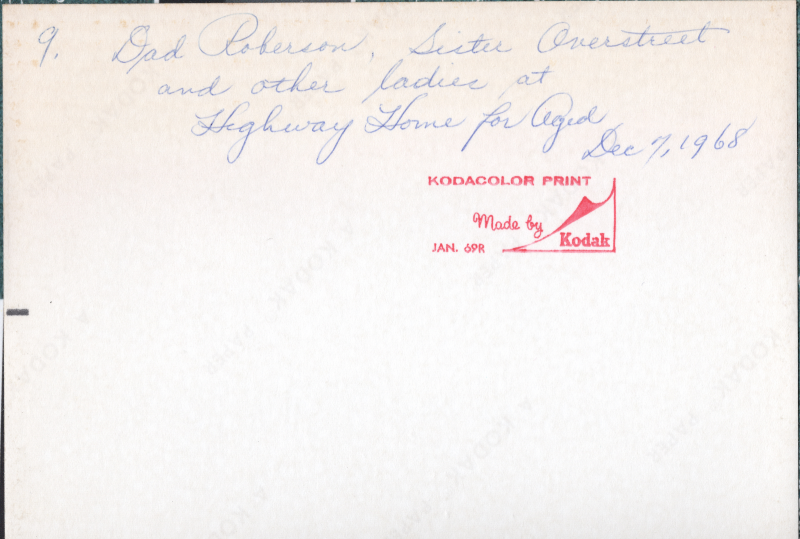 9. Dad Roberson, Sister Overstreet
and other ladies at
Highway Home for Aged
Dec 7, 1968
KODACOLOR PRINT
Made by
Kodak
JAN. 69R
A KODAK PAPER